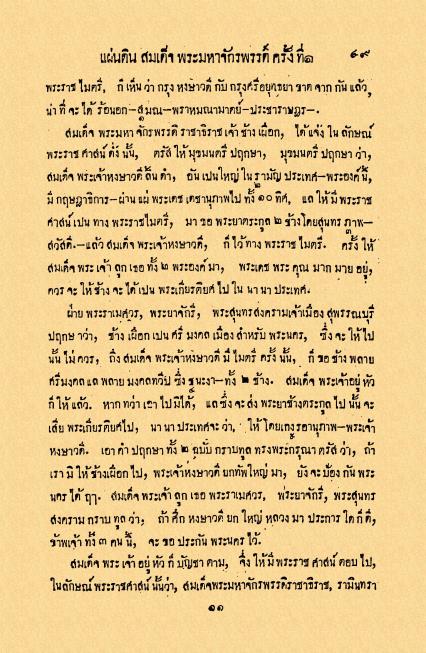 แผ่นดิน สมเด็จ พระมหาจักรพรรดิ์ ครั้ง ที่๑ ๖๙
พระราช ไมตรี, ก็ เห็น ว่า กรุง หงษาวดี กับ กรุงศรีอยุทธยา ขาด จาก กัน แล้ว,
น่า ที่ จะ ได้ ร้อนอก—สมณ—พราหมณามาตย์—ประชาราษฎร—.
สมเด็จ พระมหา จักรพรรดิ ราชาธิราช เจ้า ช้างเผือก, ได้ แจ้ง ใน ลักษณ์
พระราช สาสน์ ดั่ง นั้น, ตรัส ให้ มุขมนตรี ปฤกษา, มุขมนตรี ปฤกษา ว่า,
สมเด็จ พระเจ้าหงษาวดี ลิ้น ดำ, อัน เปนใหญ่ ใน รามัญ ประเทศ—พระองค์ นี้,
มี กฤษฎาธิการ—ผ่าน แผ่ พระเดช เดชานุภาพไป ทั้ง ๑๐ ทิศ, แล ให้ มี พระราช
สาสน์ เปน ทาง พระราชไมตรี, มา ขอ พระยาตระกูล ๒ ช้างโดยสุนทร ภาพ—
สวัสดี—แล้ว สมเด็จ พระเจ้าหงษาวดี, ก็ ไว้ ทาง พระราช ไมตรี. ครั้ง ให้
สมเด็จ พระ เจ้า ลูก เธอ ทั้ง ๒ พระองค์ มา, พระเดช พระ คุณ มาก มาย อยู่,
ควร จะ ให้ ช้าง จะ ได้ เปน พระเกียรติยศ ไป ใน นา นา ประเทศ.
ฝ่าย พระราเมศวร, พระยาจักรี, พระสุนทรสงครามเจ้าเมือง สุพรรณบุรี
ปฤกษา ว่า, ช้าง เผือก เปน ศรี มงคล เมือง สำหรับ พระนคร, ซึ่ง จะ ให้ ไป
นั้น ไม่ ควร, ถึง สมเด็จ พระเจ้าหงษาวดี มี ไมตรี ครั้ง นั้น, ก็ ขอ ช้าง พลาย
ศรีมงคล แล พลาย มงคลทวีป ซึ่ง ชนะงา—ทั้ง ๒ ช้าง. สมเด็จ พระเจ้าอยู่ หัว
ก็ ให้ แล้ว. หาก ทว่า เขา ไป มิได้, แล ซึ่ง จะ ส่ง พระยาช้างตระกูล ไป นั้น จะ
เสีย พระเกียรติยศไป, นา นา ประเทศจะ ว่า, ให้ โดยเกรงอานุภาพ—พระเจ้า
หงษาวดี. เอา คำ ปฤกษา ทั้ง ๒ ฉบับ กราบทูล ทรงพระกรุณา ตรัส ว่า, ถ้า
เรา มิ ให้ ช้างเผือก ไป, พระเจ้าหงษาวดี ยกทัพใหญ่ มา, ยัง จะ ป้อง กัน พระ
นคร ได้ ฤๅ. สมเด็จ พระเจ้า ลูก เธอ พระราเมศวร, พระยาจักรี, พระสุนทร
สงคราม กราบ ทูล ว่า, ถ้า ศึก หงษาวดี ยก ใหญ่ หลวง มา ประการ ใด ก็ ดี,
ข้าพเจ้า ทั้ง ๓ คน นี้, จะ ขอ ประกัน พระนคร ไว้.
สมเด็จ พระ เจ้า อยู่ หัว ก็ บัญชา ตาม, จึ่ง ให้ มี พระราช สาสน์ ตอบ ไป,
ในลักษณ์ พระราชสาสน์ นั้นว่า, สมเด็จพระมหาจักรพรรดิราชาธิราช, รามินทรา
๑๑